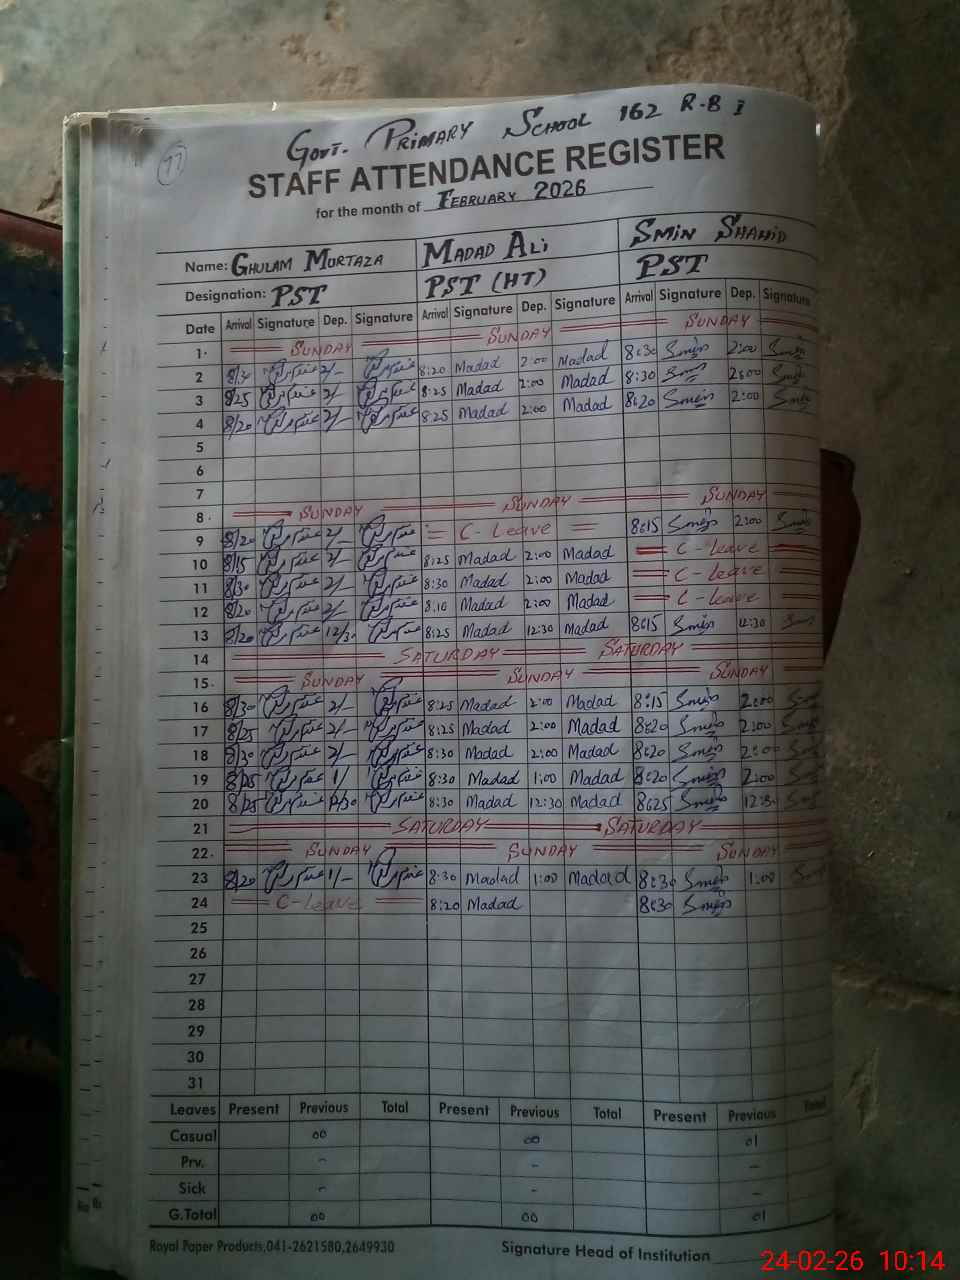 77
GOVT. PRIMARY SCHOOL 162 R-B I
STAFF ATTENDANCE REGISTER
for the month of FEBRUARY 2026
Name: GHULAM MURTAZA MADAD ALi SMIN SHAHID
Designation: PST PST (HT) PST
Date Arrival Signature Dep. Signature Arrival Signature Dep. Signature Arrival Signature Dep. Signature
1. SUNDAY SUNDAY SUNDAY
2 8/30 2/- 8:20 Madad 2:00 Madad 8:30 Smin 2:00 Smin
3 8/25 2/- 8:25 Madad 2:00 Madad 8:30 Smin 2:00 Smin
4 8/20 2/- 8:25 Madad 2:00 Madad 8:20 Smin 2:00 Smin
5
6
7
8. SUNDAY SUNDAY SUNDAY
9 8/20 2/- = C-Leave = 8:15 Smin 2:00 Smin
10 8/15 2/- 8:25 Madad 2:00 Madad C-Leave
11 8/30 2/- 8:30 Madad 2:00 Madad C-Leave
12 8/20 2/- 8:10 Madad 2:00 Madad C-Leave
13 8/20 12/30 8:25 Madad 12:30 Madad 8:15 Smin 12:30 Smin
14 SATURDAY SATURDAY
15. SUNDAY SUNDAY SUNDAY
16 8/30 2/- 8:25 Madad 2:00 Madad 8:15 Smin 2:00 Smin
17 8/25 2/- 8:25 Madad 2:00 Madad 8:20 Smin 2:00 Smin
18 8/30 2/- 8:30 Madad 2:00 Madad 8:20 Smin 2:00 Smin
19 8/25 1/ 8:30 Madad 1:00 Madad 8:20 Smin 2:00 Smin
20 8/25 12/30 8:30 Madad 12:30 Madad 8:25 Smin 12:30 Smin
21 SATURDAY SATURDAY
22. SUNDAY SUNDAY SUNDAY
23 8/20 1/- 8:30 Madad 1:00 Madad 8:30 Smin 1:00 Smin
24 C-Leave 8:20 Madad 8:30 Smin
25
26
27
28
29
30
31
Leaves Present Previous Total Present Previous Total Present Previous Total
Casual 00 00 01
Prv. - - -
Sick - - -
G.Total 00 00 01
Royal Paper Products,041-2621580,2649930 Signature Head of Institution
24-02-26 10:14